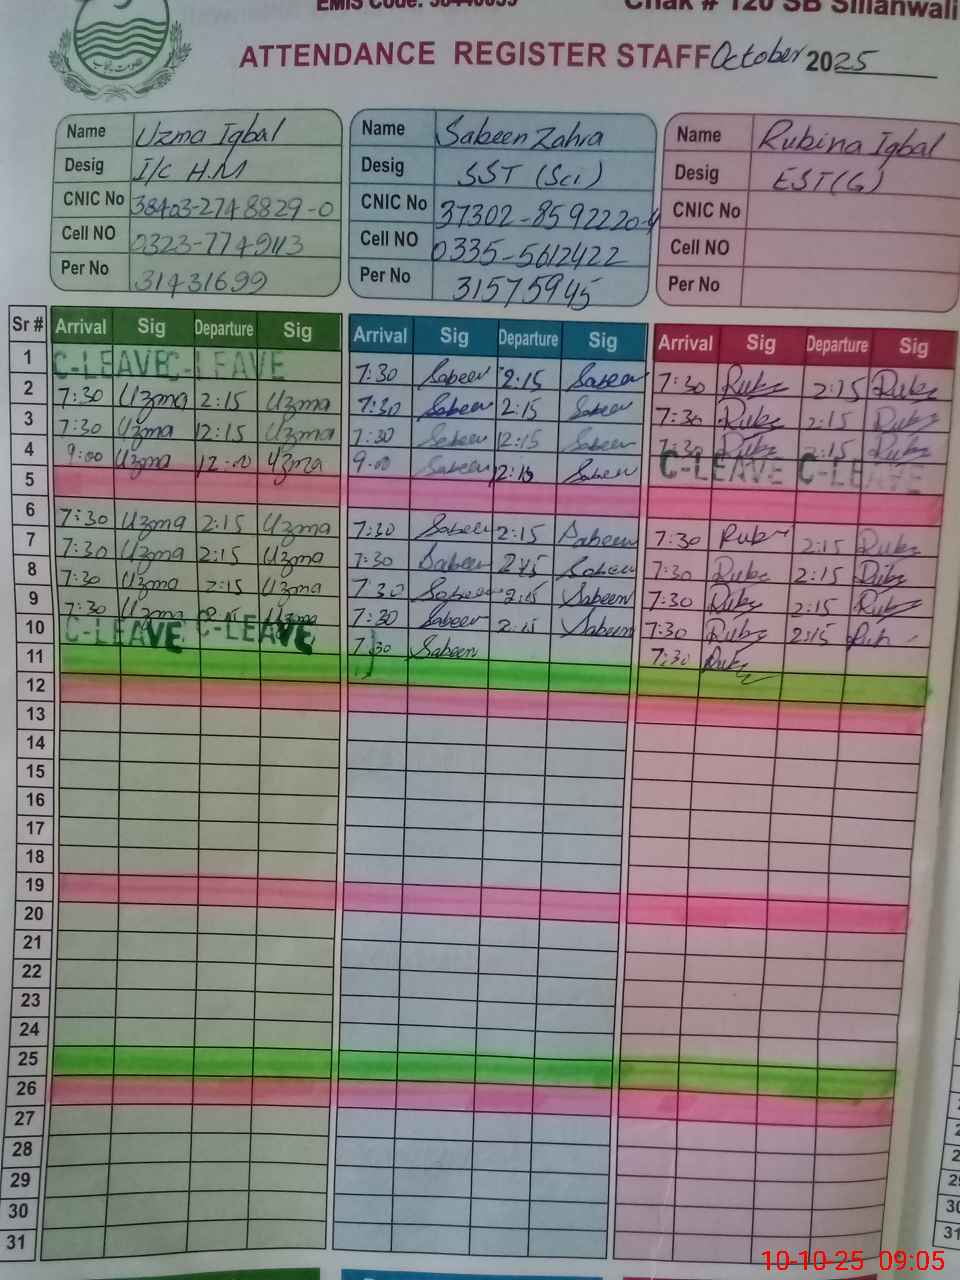 Chak # 120 SB Sillanwali
ATTENDANCE REGISTER STAFF October 2025
Name Uzma Iqbal
Desig I/C H.M
CNIC No 38403-2748829-0
Cell NO 0323-7749113
Per No 31431699
Name Sabeen Zahra
Desig SST (Sci)
CNIC No 37302-8592220-4
Cell NO 0335-5612422
Per No 31575945
Name Rubina Iqbal
Desig EST(G)
CNIC No
Cell NO
Per No
Sr # Arrival Sig Departure Sig Arrival Sig Departure Sig Arrival Sig Departure Sig
1 C-LEAVE C-LEAVE 7:30 Sabeen 2:15 Sabeen 7:30 Rubz 2:15 Rubz
2 7:30 Uzma 2:15 Uzma 7:30 Sabeen 2:15 Sabeen 7:30 Rubz 2:15 Rubz
3 7:30 Uzma 12:15 Uzma 7:30 Sabeen 12:15 Sabeen 7:30 Rubz 2:15 Rubz
4 9:00 Uzma Uzma 9:00 Sabeen 12:15 Sabeen C-LEAVE C-LEAVE
5
6 7:30 Uzma 2:15 Uzma 7:30 Sabeen 2:15 Sabeen 7:30 Rubz 2:15 Rubz
7 7:30 Uzma 2:15 Uzma 7:30 Sabeen 2:15 Sabeen 7:30 Rubz 2:15 Rubz
8 7:30 Uzma 2:15 Uzma 7:30 Sabeen 2:15 Sabeen 7:30 Rubz 2:15 Rubz
9 7:30 Uzma Uzma 7:30 Sabeen 2:15 Sabeen 7:30 Rubz 2:15 Rub
10 C-LEAVE C-LEAVE 7:30 Sabeen 7:30 Rubz
11
12
13
14
15
16
17
18
19
20
21
22
23
24
25
26
27
28
29
30
31
10-10-25 09:05